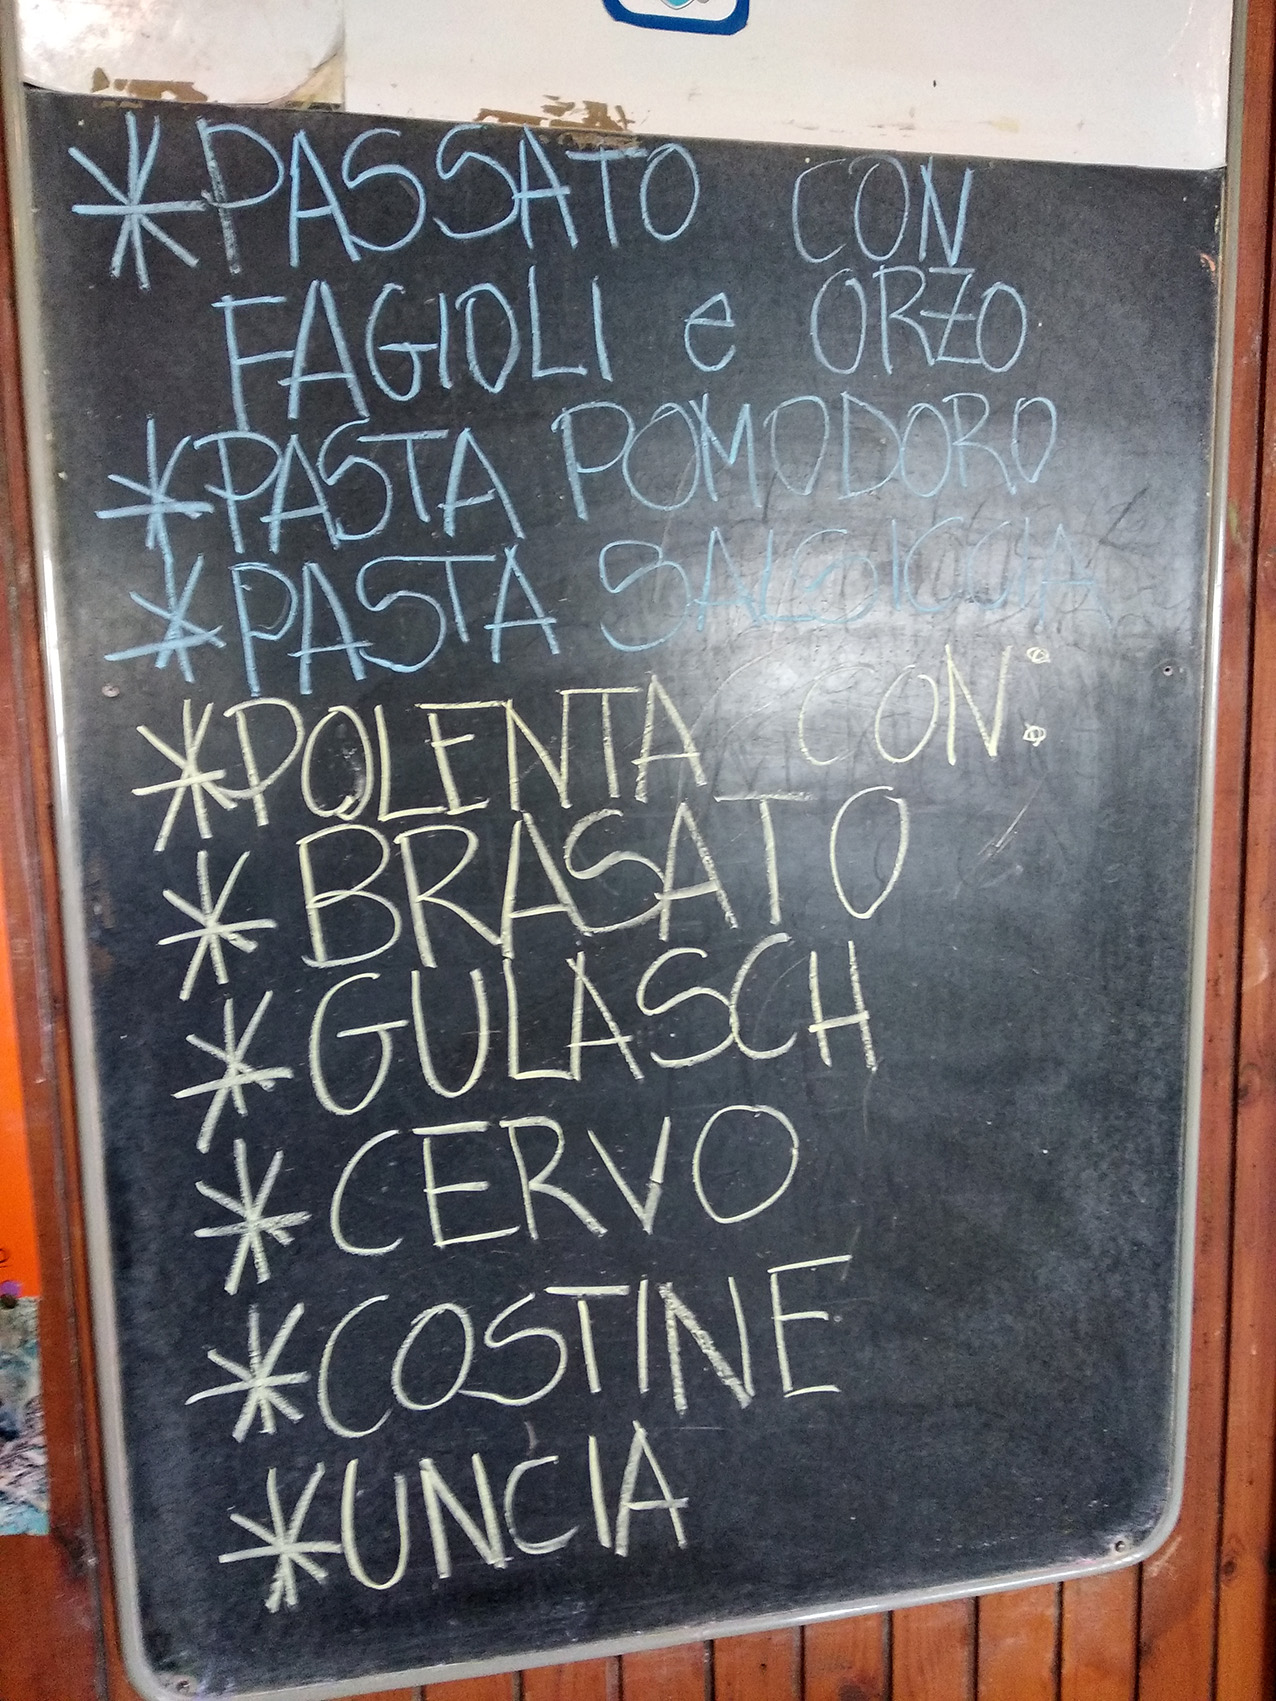 *PASSATO CON
FAGIOLI e ORZO
*PASTA POMODORO
*PASTA SALSICCIA
*POLENTA CON:
* BRASATO
* GULASCH
* CERVO
* COSTINE
* UNCIA